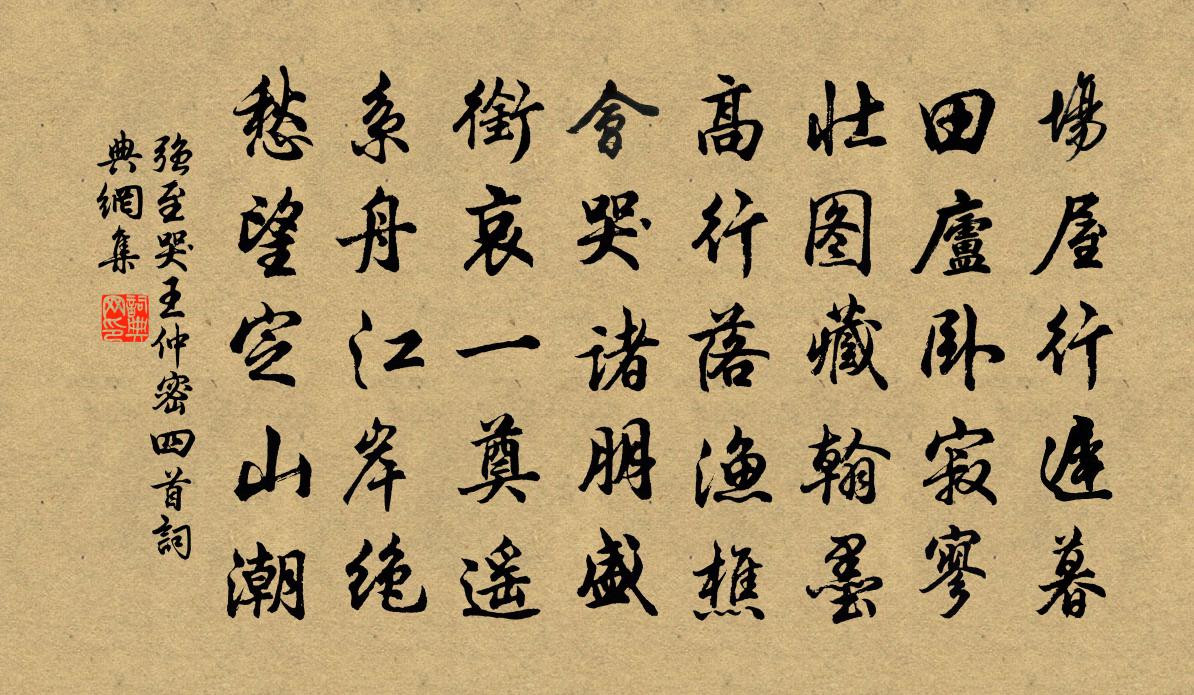 場屋行遲暮
田廬卧寂寥
壯图藏翰墨
高行落漁樵
會哭諸朋盛
銜哀一奠遥
系舟江岸绝
愁望定山潮
强至哭王仲密四首詞
典網集
詞典
网印